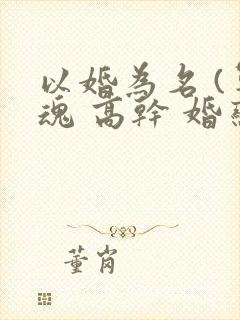 以婚為名(
魂 高幹 婚
董肖